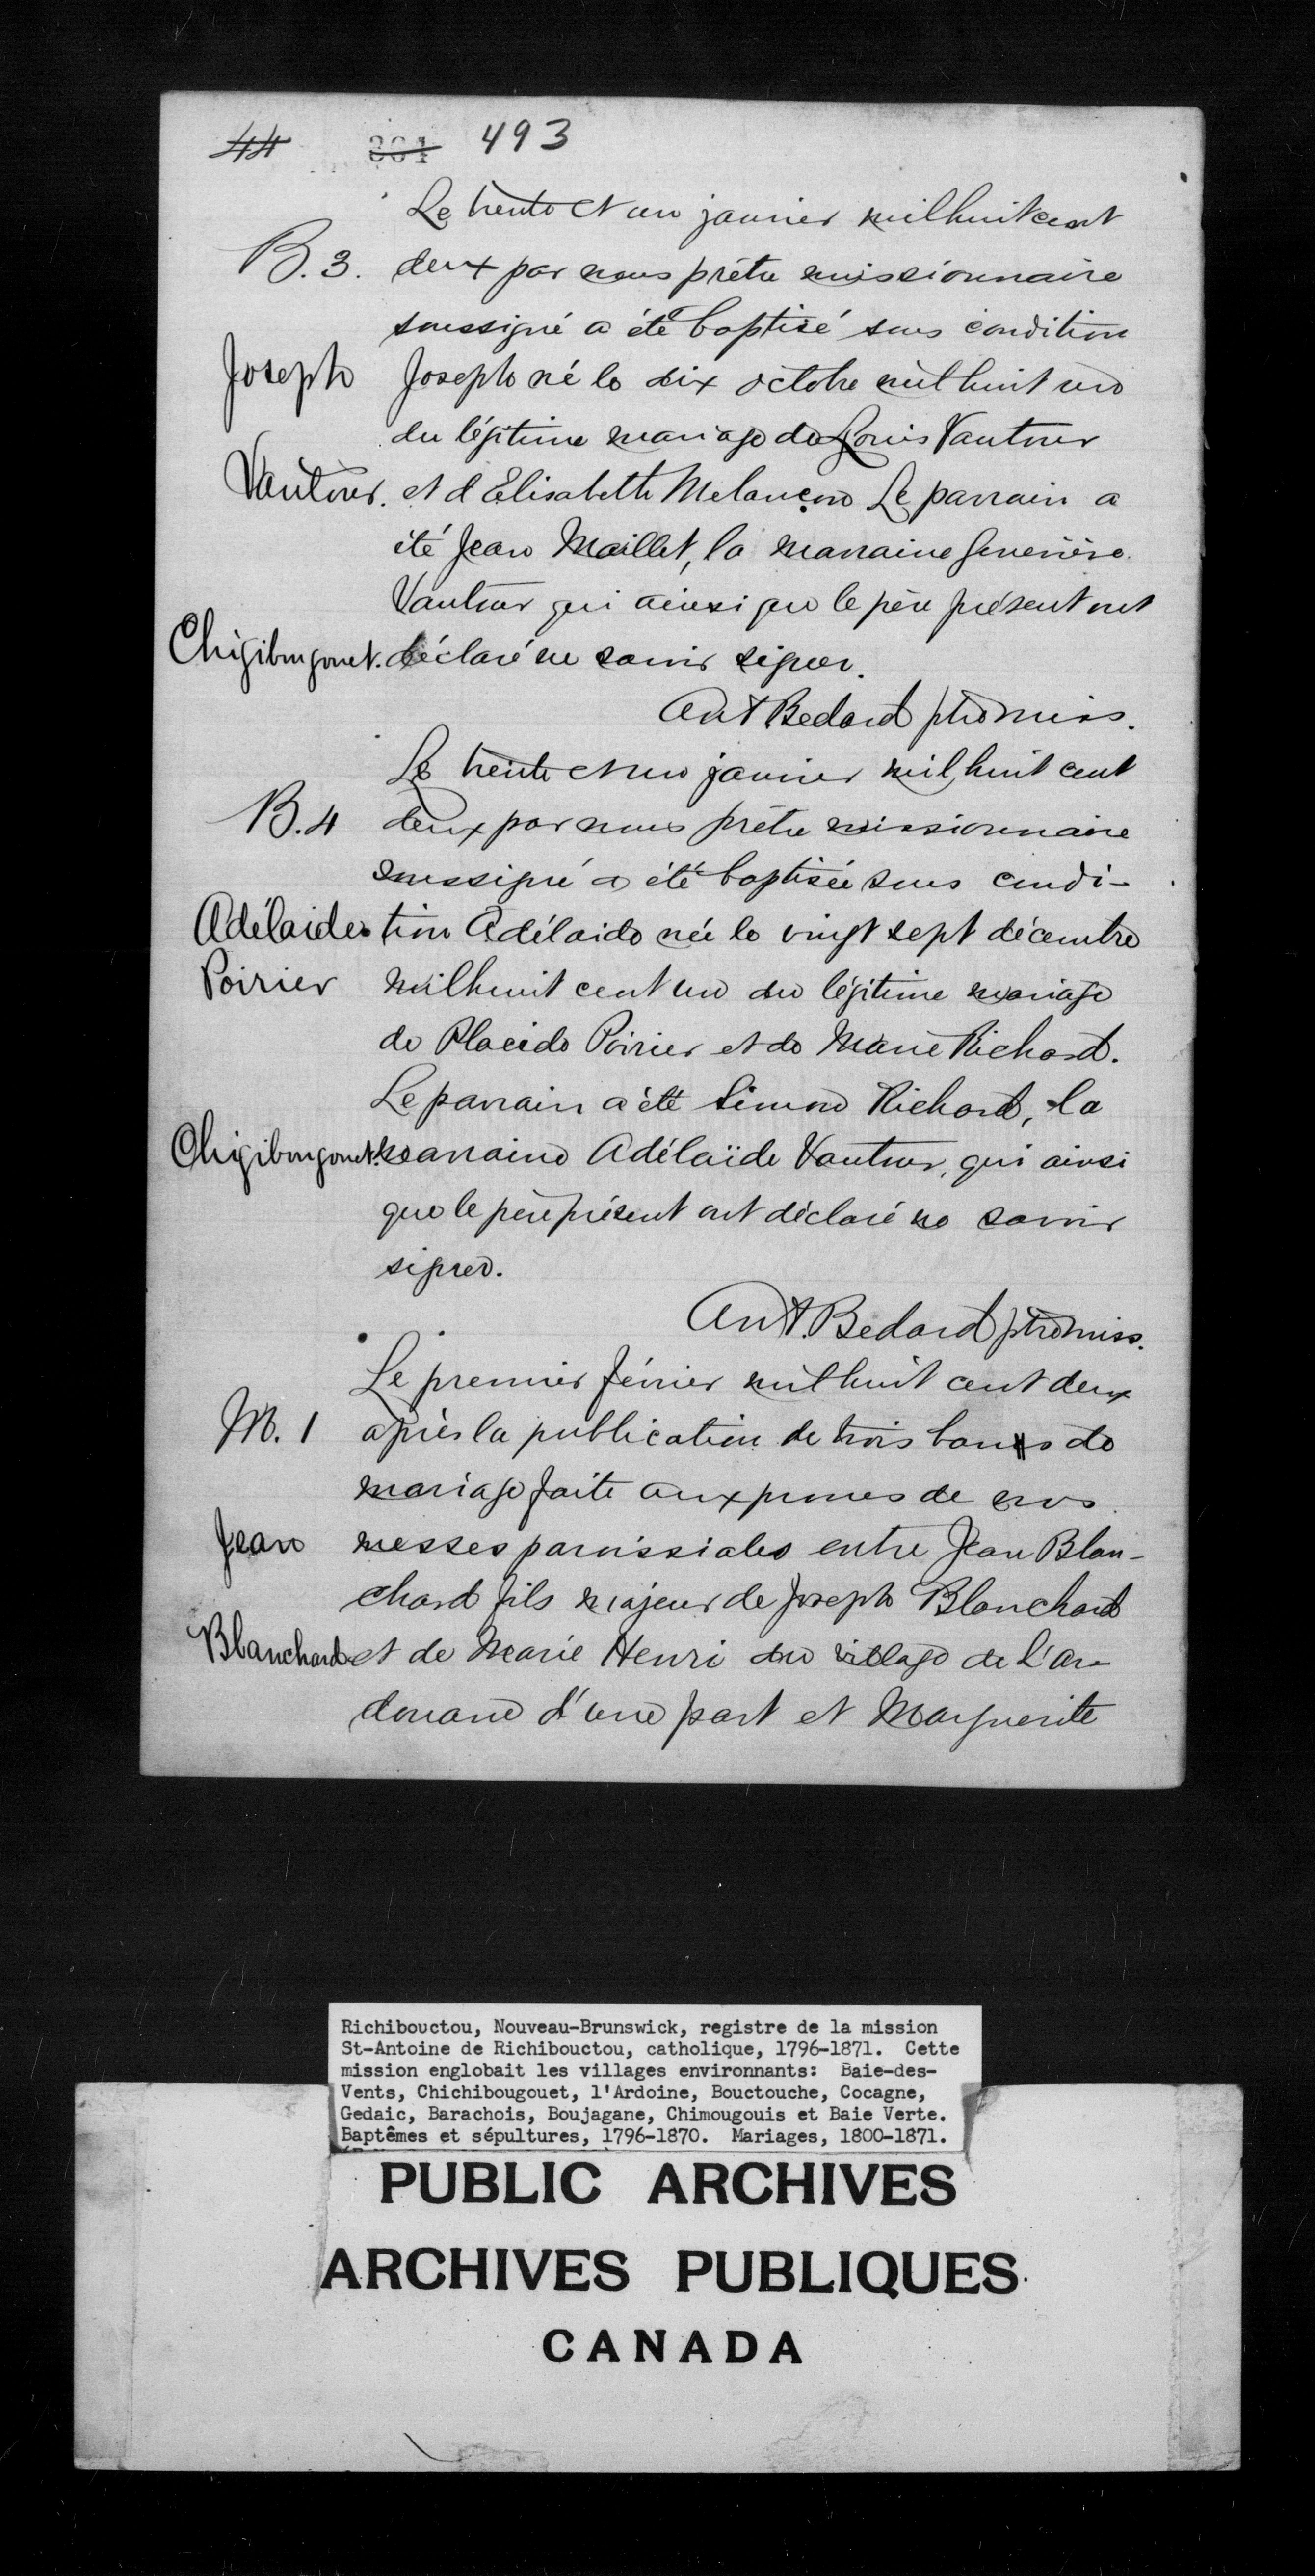 44 331 493
Le trente et un janvier mil huit cent
B. 3. deux par nous prêtre missionnaire
soussigné a été baptisé sous condition
Joseph Joseph né le dix octobre mil huit un
du légitime mariage de Louis Vautour
Vautour. et d'Elisabeth Melançon Le parrain a
été Jean Maillet, la marraine Geneviève
Vautour qui ainsi que le père présent ont
Chigibougouet. déclaré ne savoir signer.
Ant Bedard ptre miss.
Le trente et un janvier mil huit cent
B. 4 deux par nous prêtre missionnaire
soussigné a été baptisée sous condi-
Adélaide tion Adélaide née le vingt sept décembre
Poirier mil huit cent un du légitime mariage
de Placide Poirier et de Marie Richard.
Le parrain a été Simon Richard, la
Chigibougouet. marraine Adélaïde Vautour, qui ainsi
que le père présent ont déclaré ne savoir
signer.
Ant. Bedard ptre miss.
Le premier février mil huit cent deux
M. 1 après la publication de trois bans de
mariage faite aux prones de nos
Jean messes paroissiales entre Jean Blan-
chard fils majeur de Joseph Blanchard
Blanchard et de Marie Henri du village de l'Ar-
douane d'une part et Marguerite
Richibouctou, Nouveau-Brunswick, registre de la mission
St-Antoine de Richibouctou, catholique, 1796-1871. Cette
mission englobait les villages environnants: Baie-des-
Vents, Chichibougouet, l'Ardoine, Bouctouche, Cocagne,
Gedaic, Barachois, Boujagane, Chimougouis et Baie Verte.
Baptêmes et sépultures, 1796-1870. Mariages, 1800-1871.
PUBLIC ARCHIVES
ARCHIVES PUBLIQUES
CANADA